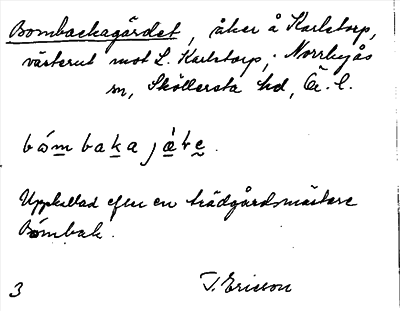 Bombackagärdet, åker å Karlstorp,
västerut mot L. Karlstorp, Norrbyås
sn, Sköllersta hd, Ö. l.
bòmbaka jæ̀te.
Uppkallad efter en trädgårdsmästare
Bómbak.
3 T. Ericson